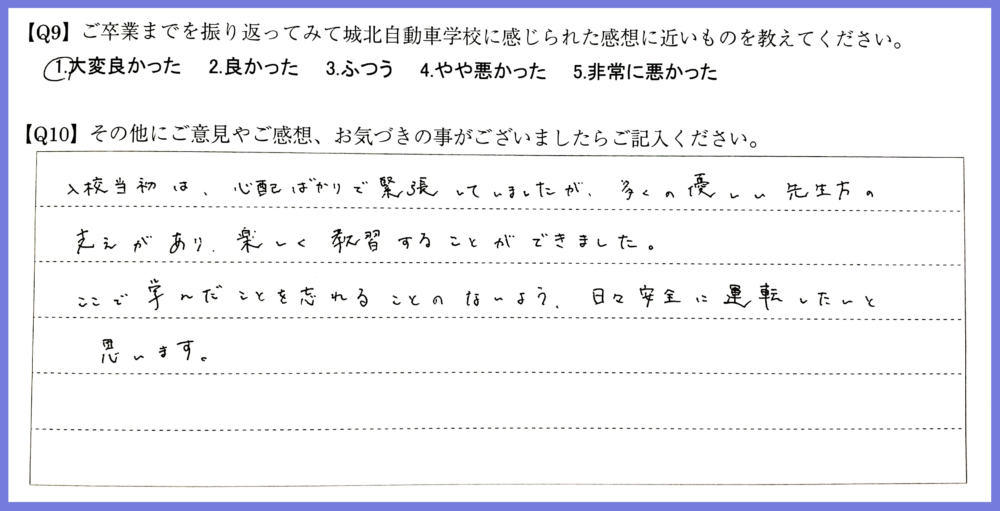 【Q9】ご卒業までを振り返ってみて城北自動車学校に感じられた感想に近いものを教えてください。
1.大変良かった 2.良かった 3.ふつう 4.やや悪かった 5.非常に悪かった
【Q10】その他にご意見やご感想、お気づきの事がございましたらご記入ください。
入校当初は、心配ばかりで緊張していましたが、多くの優しい先生方の
支えがあり、楽しく教習することができました。
ここで学んだことを忘れることのないよう、日々安全に運転したいと
思います。